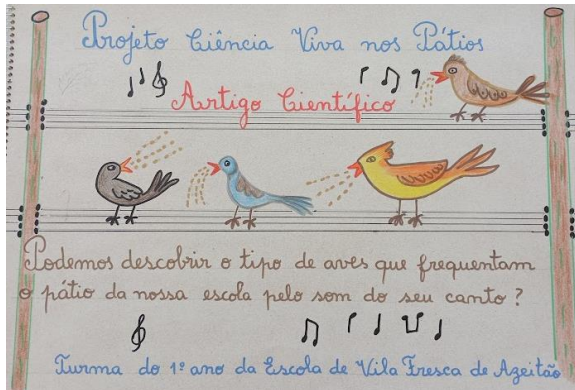 Projeto Ciência Viva nos Pátios
Artigo Científico
Podemos descobrir o tipo de aves que frequentam
o pátio da nossa escola pelo som do seu canto?
Turma do 1º ano da Escola de Vila Fresca de Azeitão